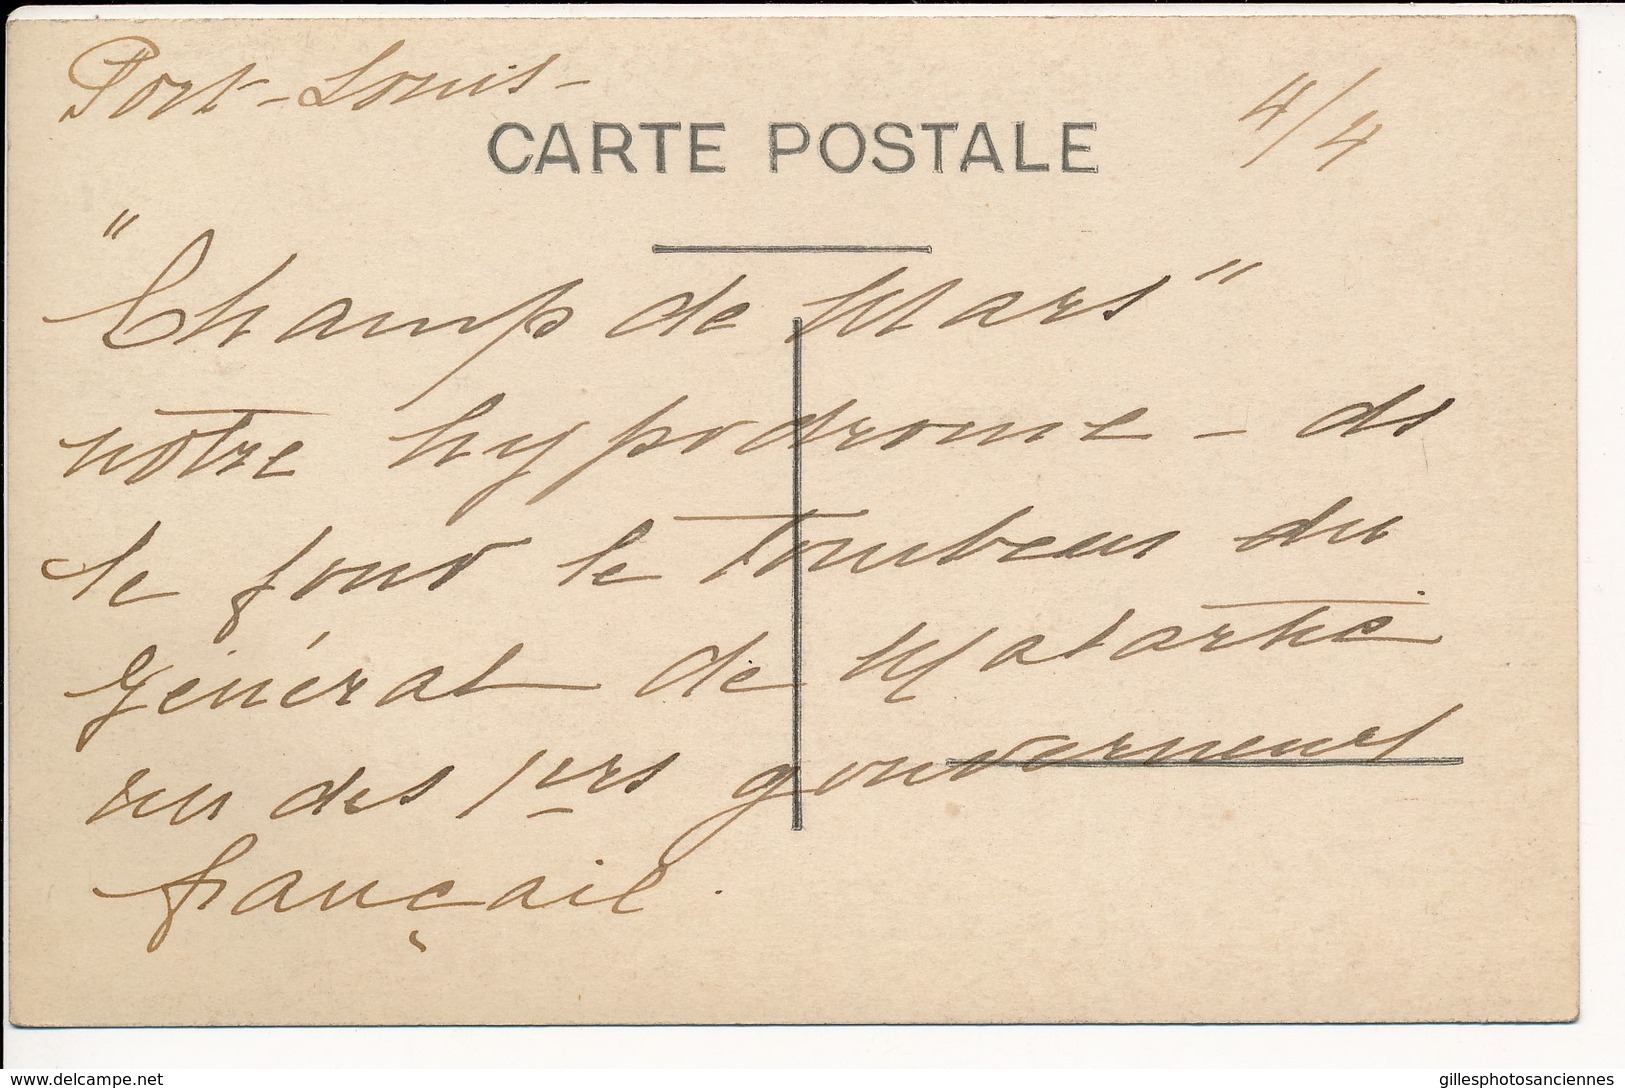 Port-Louis-
4/4
CARTE POSTALE
"Champ de Mars"
notre hypodrome - ds
le fond le Tombeau du
Général de Malartic
un des 1ers gouverneurs
français.
www.delcampe.net
gillesphotosanciennes